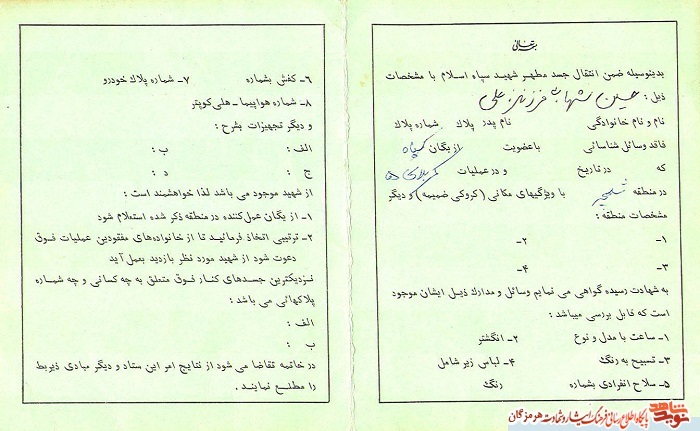 بسمه تعالی
بدینوسیله ضمن انتقال جسد مطهر شهید سپاه اسلام با مشخصات
ذیل : حسین شهابی فرزند علی
نام و نام خانوادگی نام پدر پلاک شماره پلاک
فاقد وسائل شناسائی باعضویت از یگان سپاه
که در تاریخ و در عملیات کربلای ۵
در منطقه شلمچه با ویژگیهای مکانی (کروکی ضمیمه) و دیگر
مشخصات منطقه :
۱- ۲-
۳- ۴-
به شهادت رسیده گواهی می نمایم وسائل و مدارک ذیل ایشان موجود
است که قابل بررسی میباشد :
۱- ساعت با مدل و نوع ۲- انگشتر
۳- تسبیح به رنگ ۴- لباس زیر شامل
۵- سلاح انفرادی بشماره رنگ
۶- کفش بشماره ۷- شماره پلاک خودرو
۸- شماره هواپیما - هلی کوپتر
و دیگر تجهیزات بشرح :
الف : ب :
ج : د :
از شهید موجود می باشد لذا خواهشمند است :
۱- از یگان عمل کننده در منطقه ذکر شده استعلام شود
۲- ترتیبی اتخاذ فرمائید تا از خانواده های مفقودین عملیات فوق
دعوت شود از شهید مورد نظر بازدید بعمل آید
نزدیکترین جسدهای کنار فوق متعلق به چه کسانی و چه شماره
پلاکهائی می باشد :
الف :
ب :
در خاتمه تقاضا می شود از نتایج امر این ستاد و دیگر مبادی ذیربط
را مطلع نمایند .
نوید شاهد
پایگاه اطلاع رسانی فرهنگ ایثار و شهادت هرمزگان